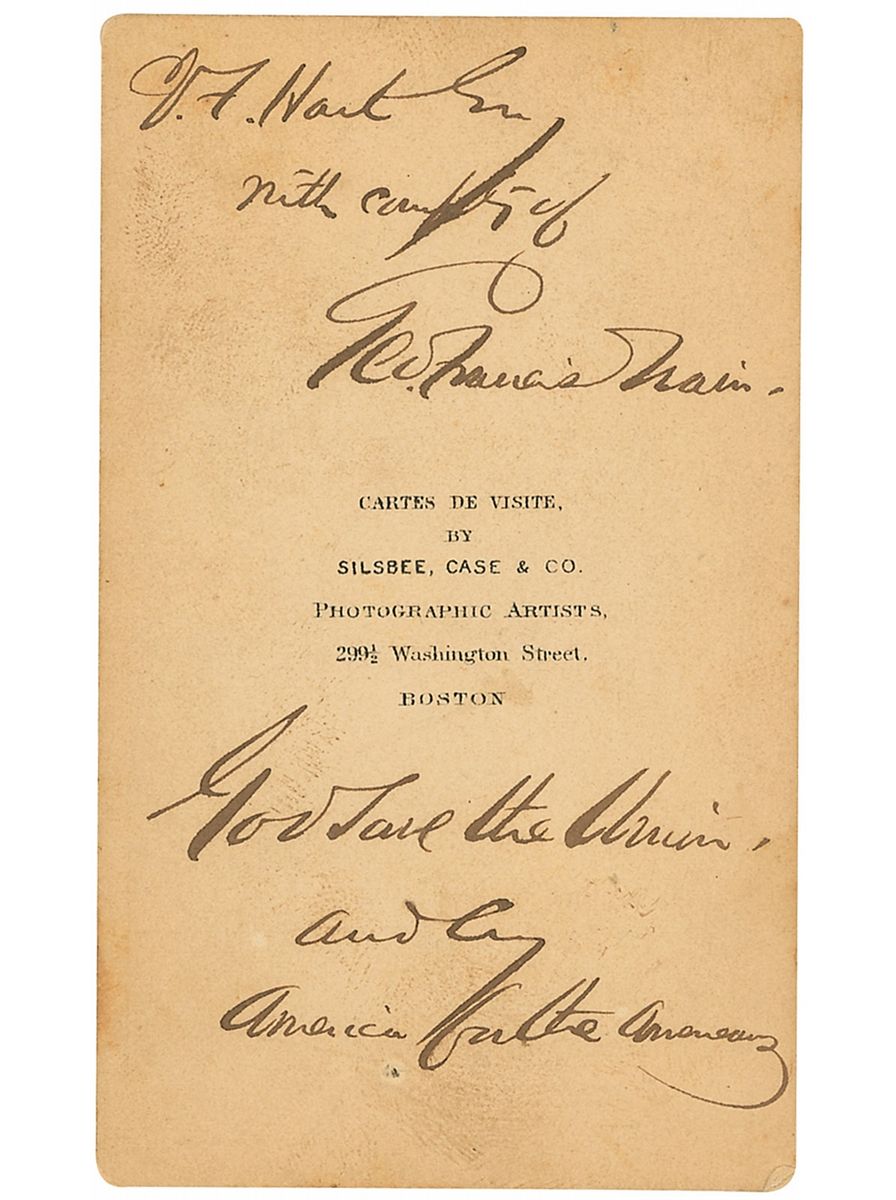 V. F. Hart Esq
with compts of
Geo. Francis Train.
CARTES DE VISITE,
BY
SILSBEE, CASE & CO.
PHOTOGRAPHIC ARTISTS,
299½ Washington Street.
BOSTON
God Save the Union,
and
America for the Americans